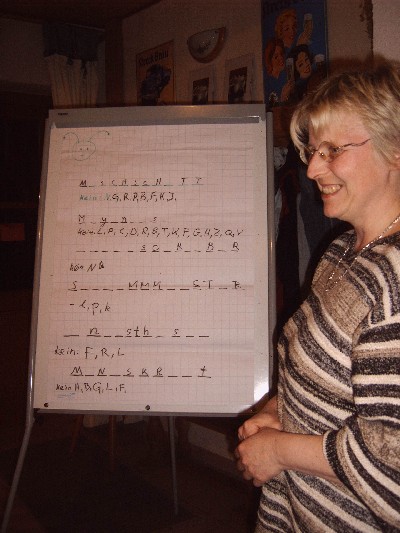 M _ s c H i s c H _ _ T T
kein: V, G, R, P, B, F, K, J.
M _ y _ n _ _ s _
kein: L, P, C, O, R, B, T, K, F, G, H, Z, Q, V
_ _ _ _ _ _ S C H _ _ B _ R
kein N
S _ _ _ _ M M _ _ S T _ R
- l, p, k
_ n _ sth _ s _ _
kein: F, R, L
M _ N _ S K R _ _ t
kein H, B, G, L, F.